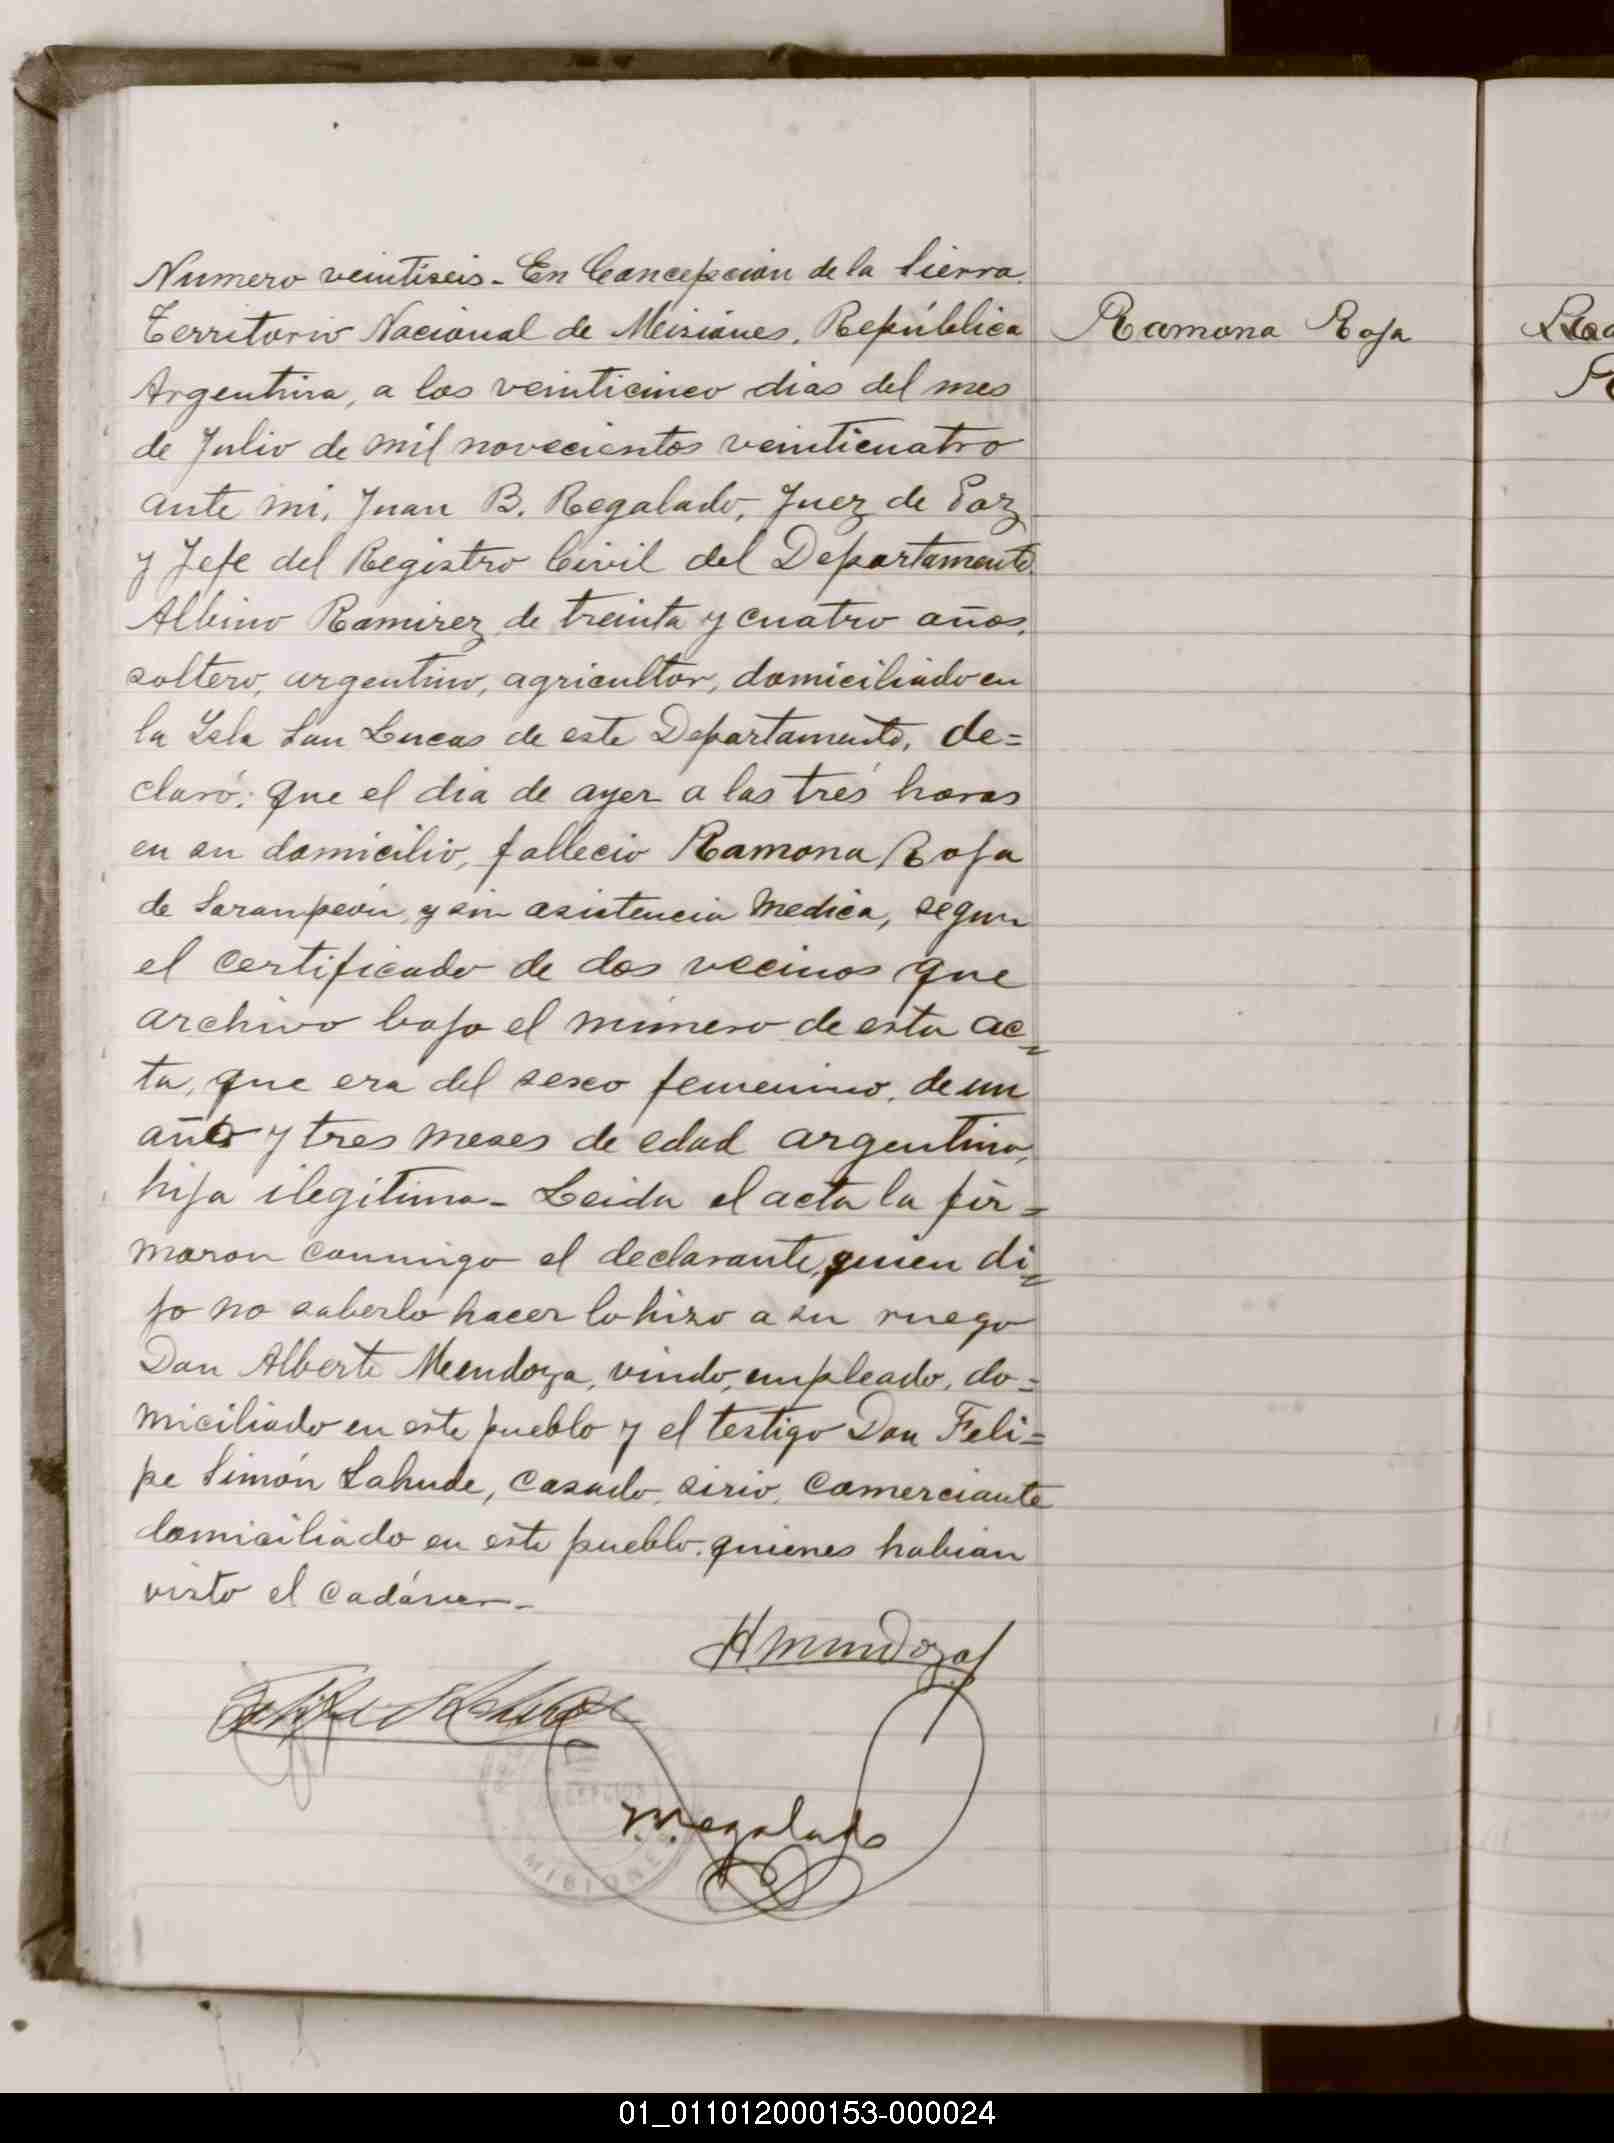 Numero veintiseis - En Concepción de la Sierra.
Territorio Nacional de Misiones, República
Ramona Roja
Argentina, a los veinticinco dias del mes
de Julio de mil novecientos veinticuatro
ante mi, Juan B. Regalado, Juez de Paz
y Jefe del Registro Civil del Departamento.
Albino Ramirez de treinta y cuatro años,
soltero, argentino, agricultor, domiciliado en
la Isla San Lucas de este Departamento, de=
claró: que el dia de ayer a las tres horas
en su domicilio, fallecio Ramona Roja
de Sarampión, y sin asistencia medica, segun
el certificado de dos vecinos que
archivo bajo el número de esta ac=
ta, que era del sexo femenino, de un
año y tres meses de edad argentina,
hija ilegitima - Leida el acta la fir=
maron conmigo el declarante, quien di=
jo no saberlo hacer lo hizo a su ruego
Don Alberto Mendoza, viudo, empleado, do=
miciliado en este pueblo y el testigo Don Feli=
pe Simón Lahude, casado, sirio, comerciante
domiciliado en este pueblo, quienes habian
visto el cadáver -
Mendoza
Regalado
MISIONES
01_011012000153-000024